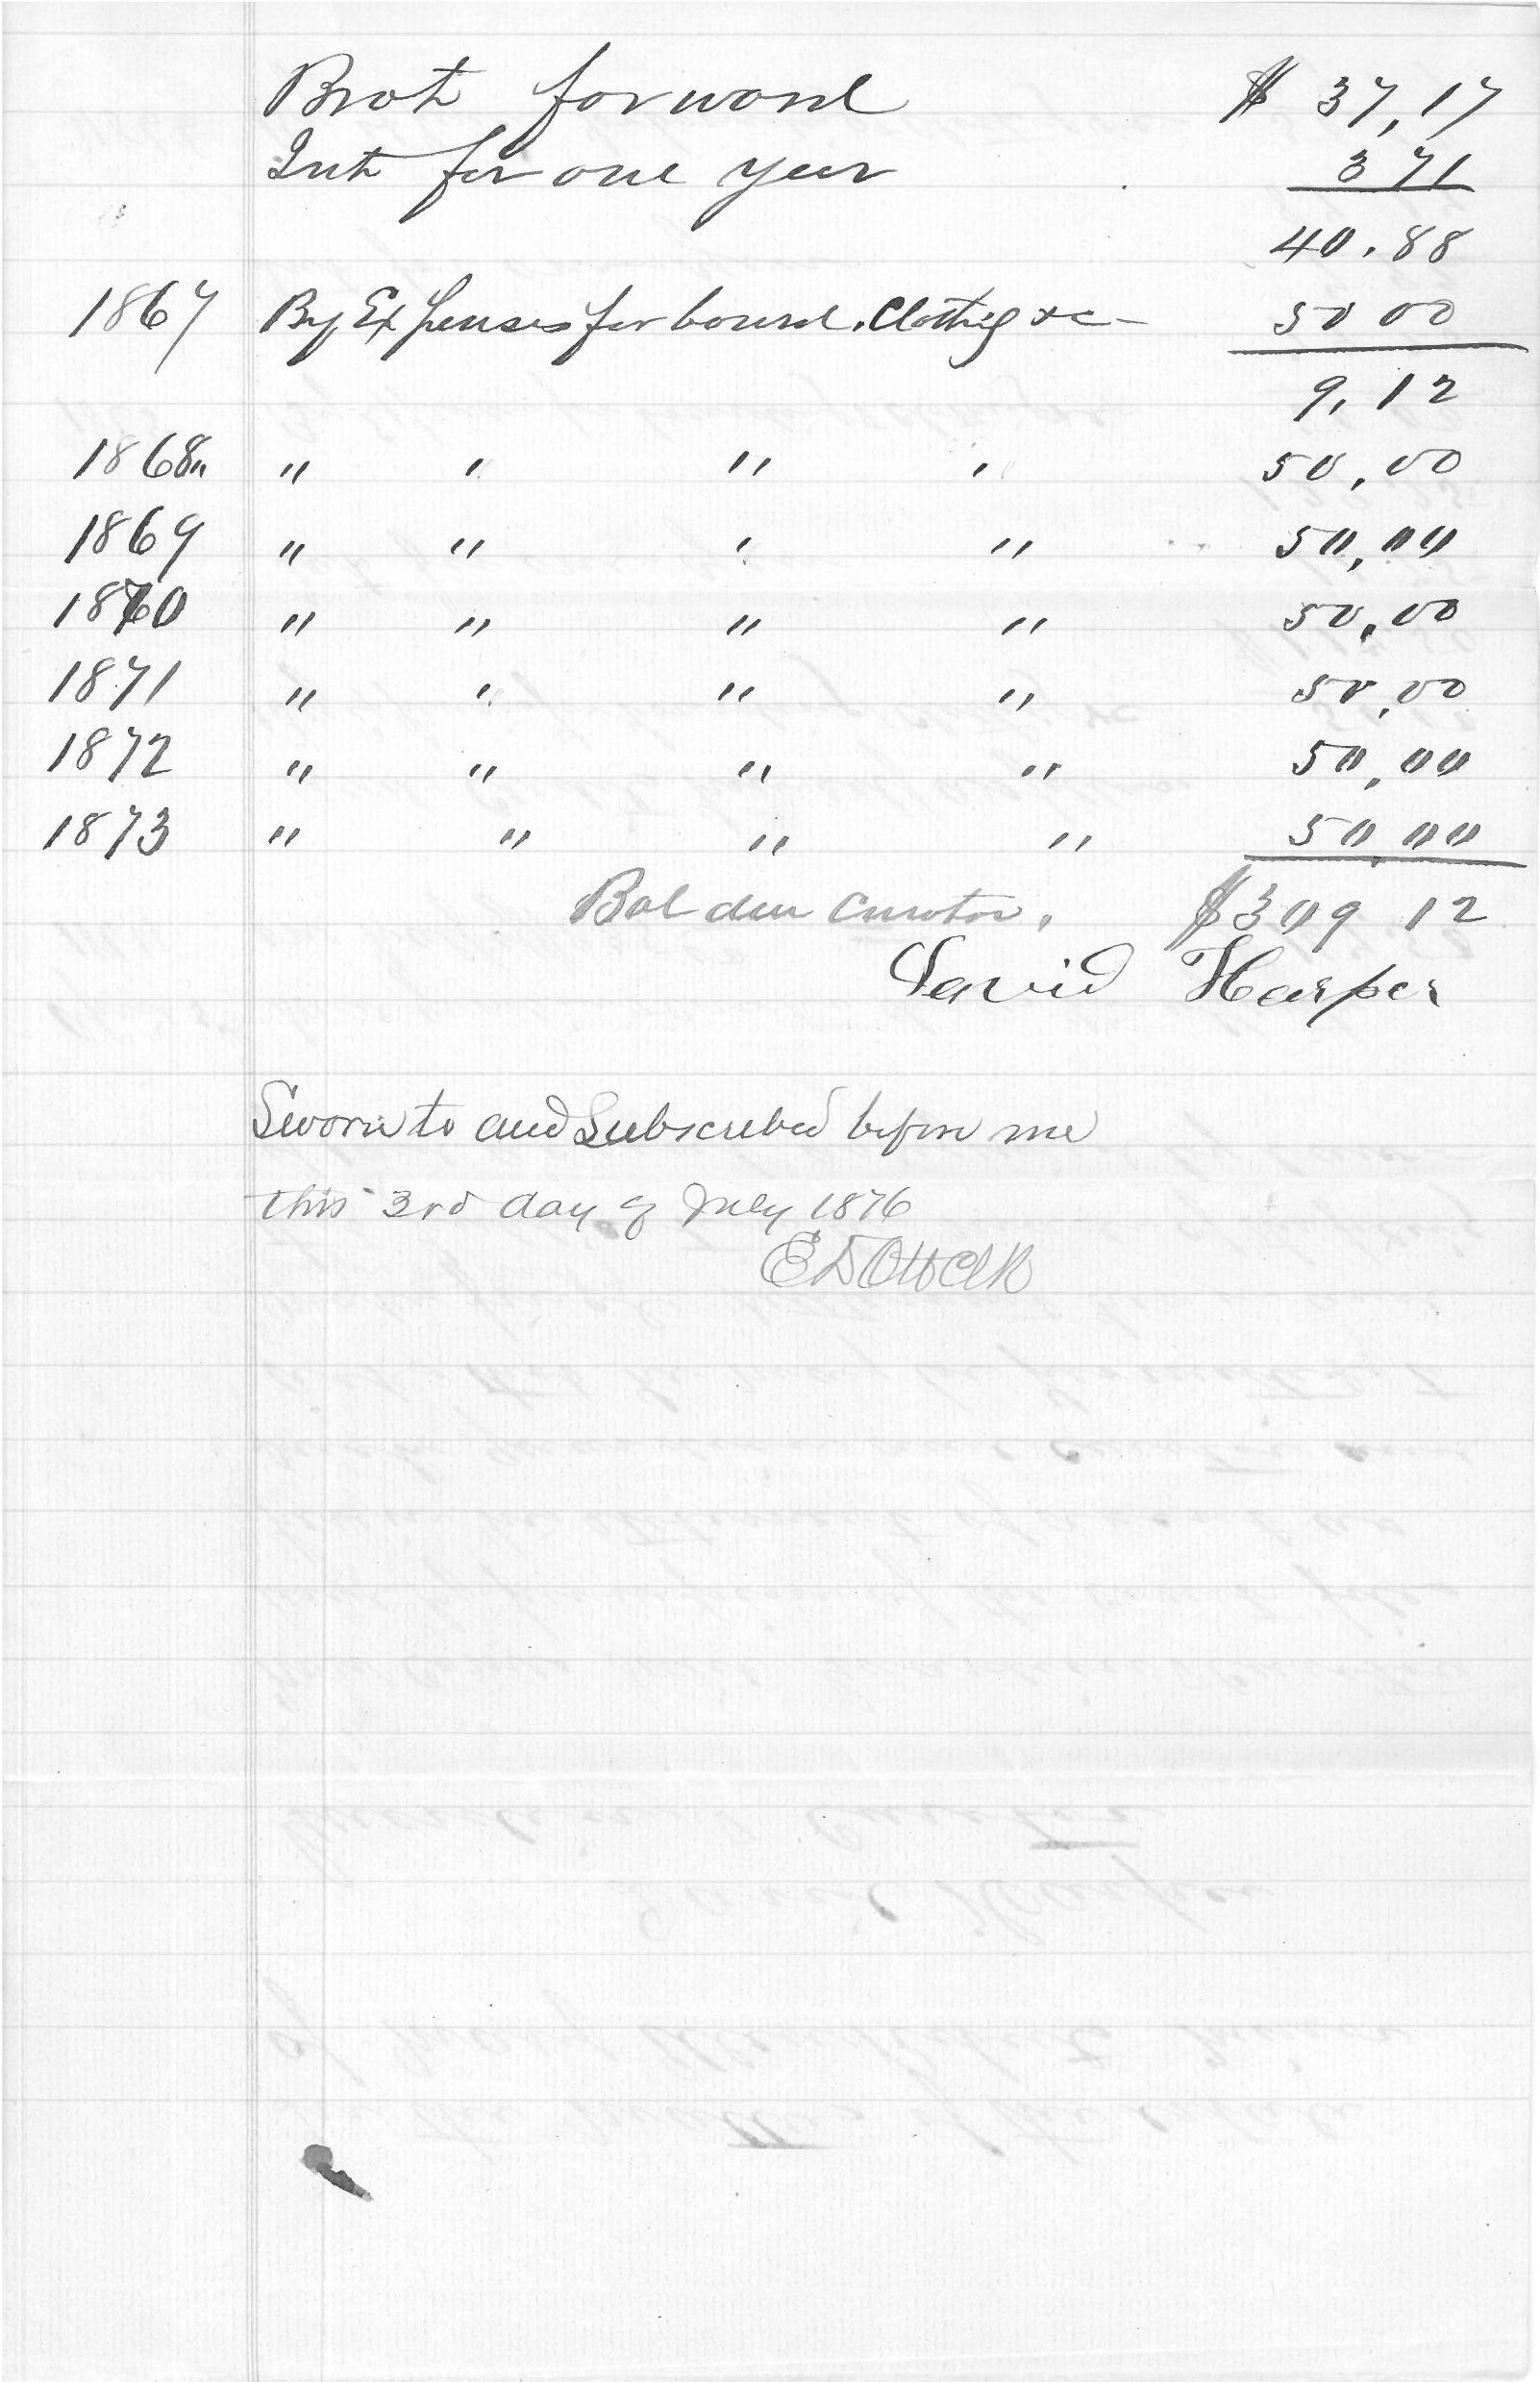 Brot forward $ 37,17
Int for one year 3 71
40.88
1867 By Expenses for board. Clothig &c — 50 00
9,12
1868" " " " " 50,00
1869 " " " " 50,00
1870 " " " " 50,00
1871 " " " " 50,00
1872 " " " " 50,00
1873 " " " " 50,00
Bal due Curator. $309 12
David Harper
Sworn to and Subscribed before me
this 3rd day of July 1876
E D Ott Clk